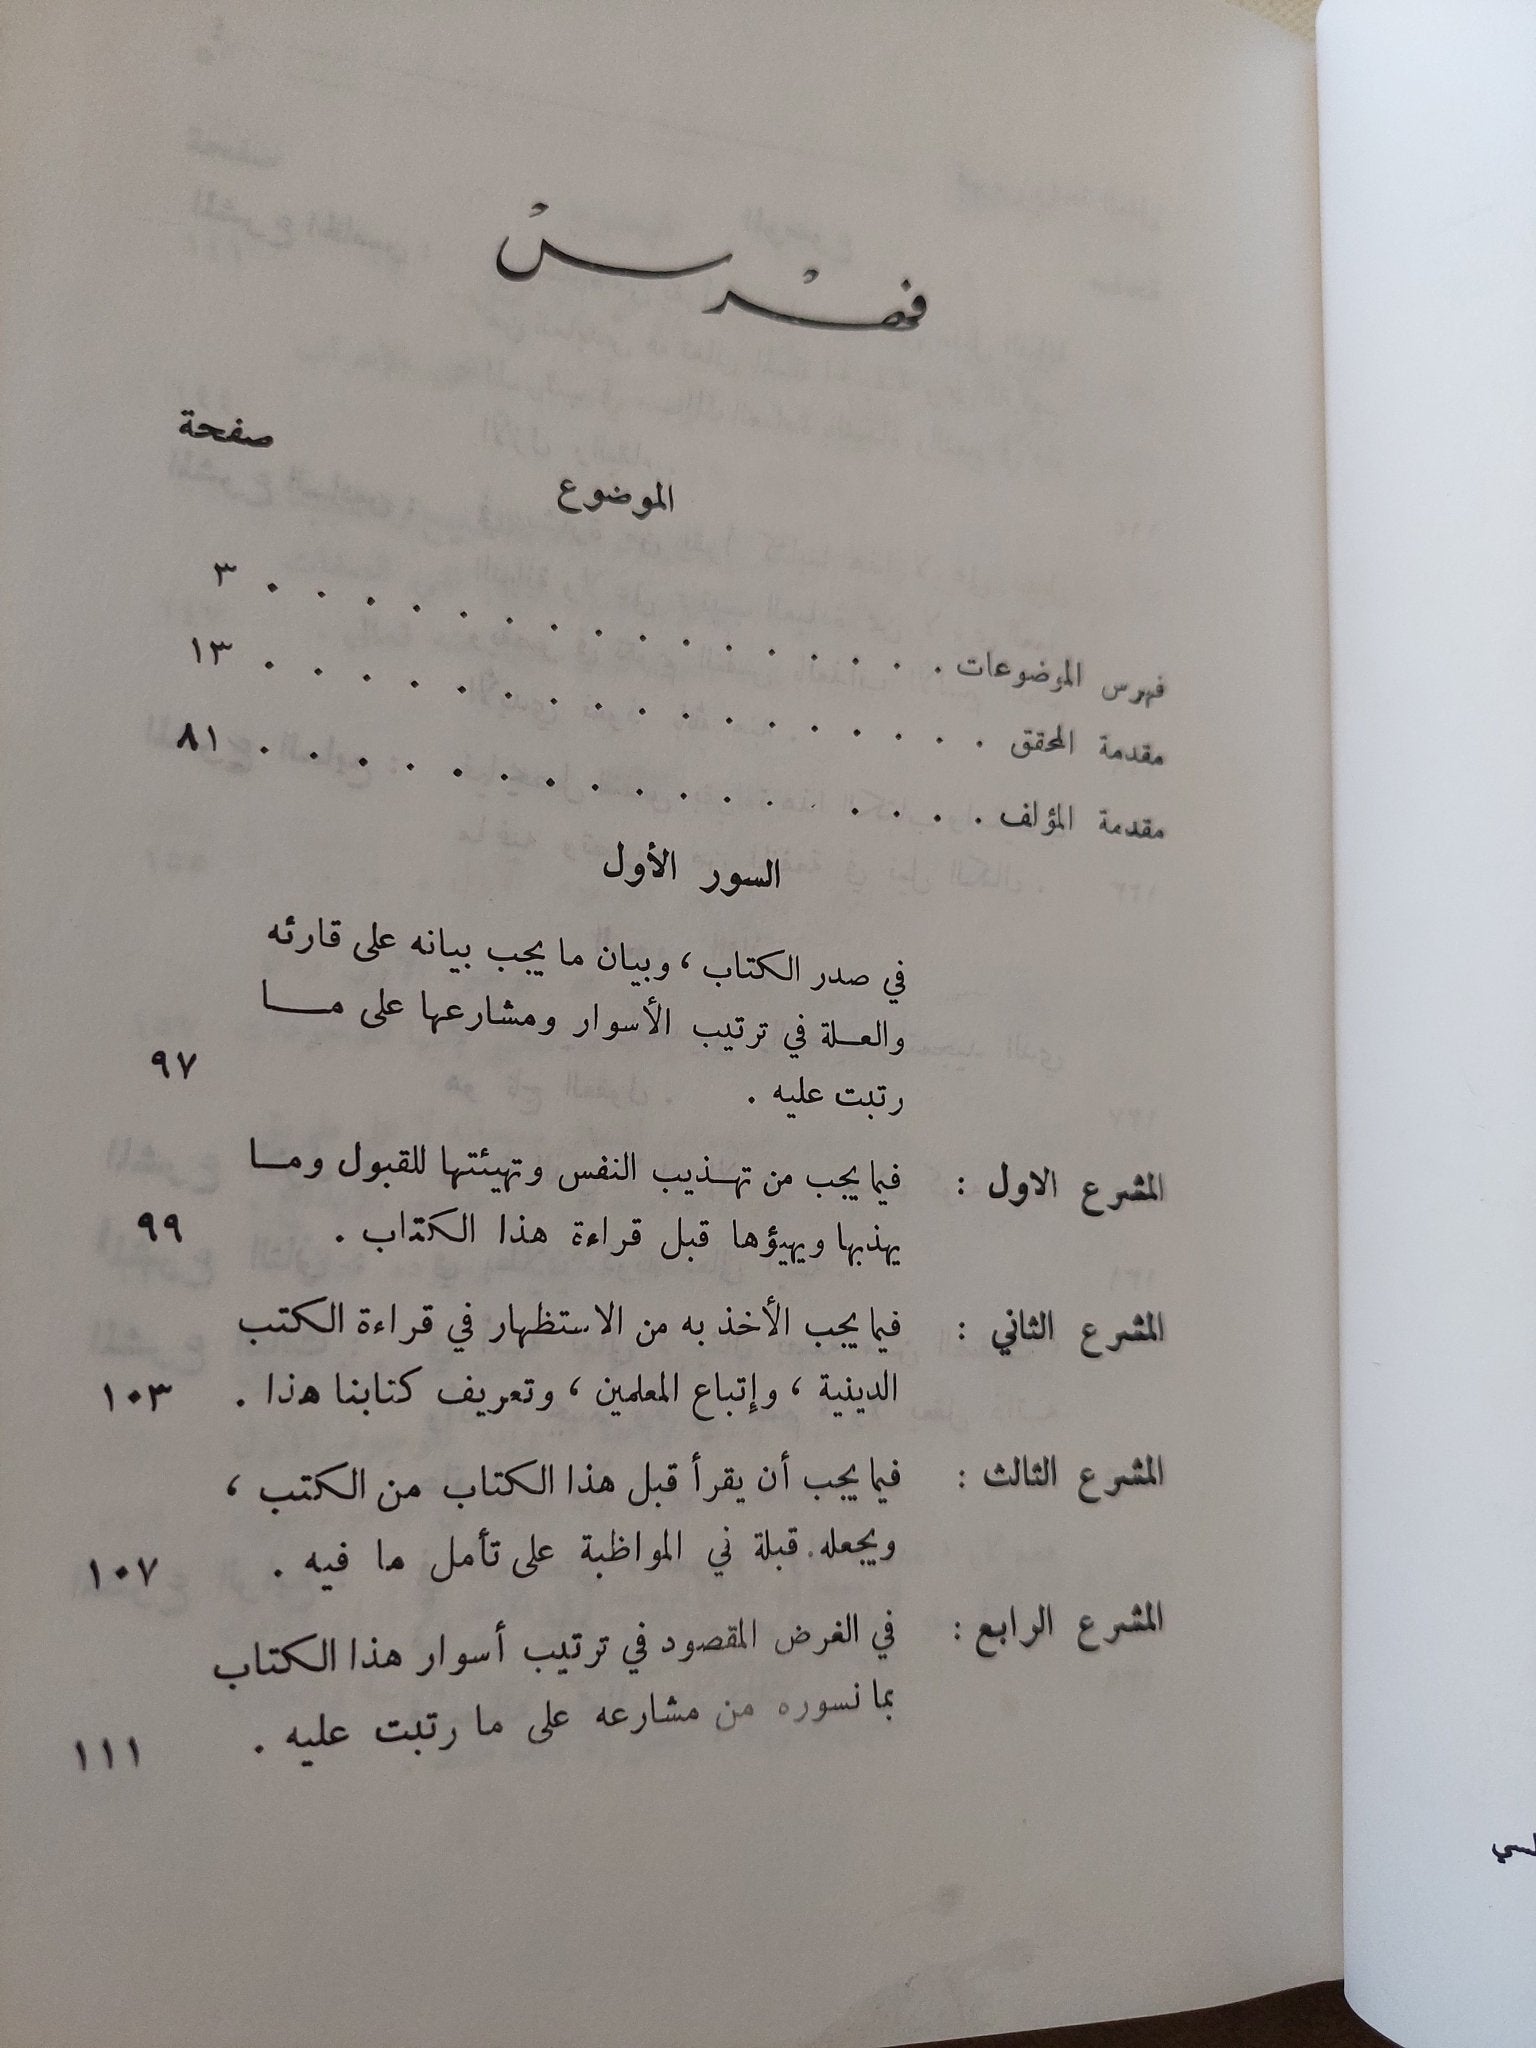 فهرس
صفحة
الموضوع
فهرس الموضوعات . . . . . . . . . . . . . . . . ٣
مقدمة المحقق . . . . . . . . . . . . . . . . ١٣
مقدمة المؤلف . . . . . . . . . . . . . . . . ٨١
السور الأول
في صدر الكتاب ، وبيان ما يجب بيانه على قارئه
والعـلة في ترتيب الأسوار ومشارعها على مـا
رتبت عليه . ٩٧
المشرع الاول : فيما يجب من تهـذيب النفس وتهيئتها للقبول ومـا
يهذبها ويهيؤها قبل قراءة هذا الكتاب . ٩٩
المشرع الثاني : فيما يجب الأخذ به من الاستظهار في قراءة الكتب
الدينية ، وإتباع المعلمين ، وتعريف كتابنا هذا . ١٠٣
المشرع الثالث : فيما يجب أن يقرأ قبل هذا الكتاب من الكتب ،
ويجعله قبلة في المواظبة على تأمل ما فيه . ١٠٧
المشرع الرابع : في الغرض المقصود في ترتيب أسوار هذا الكتاب
بما نسوره من مشارعه على ما رتبت عليه . ١١١